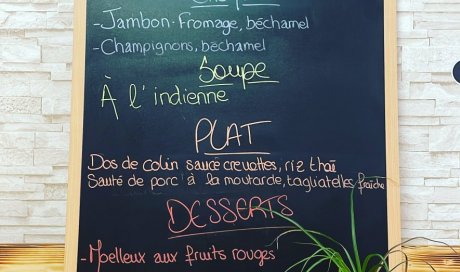 - Jambon-Fromage, béchamel
- Champignons, béchamel
Soupe
À l'indienne
PLAT
Dos de colin sauce crevettes, riz thaï
Sauté de porc à la moutarde, tagliatelles fraîche
DESSERTS
- Moelleux aux fruits rouges